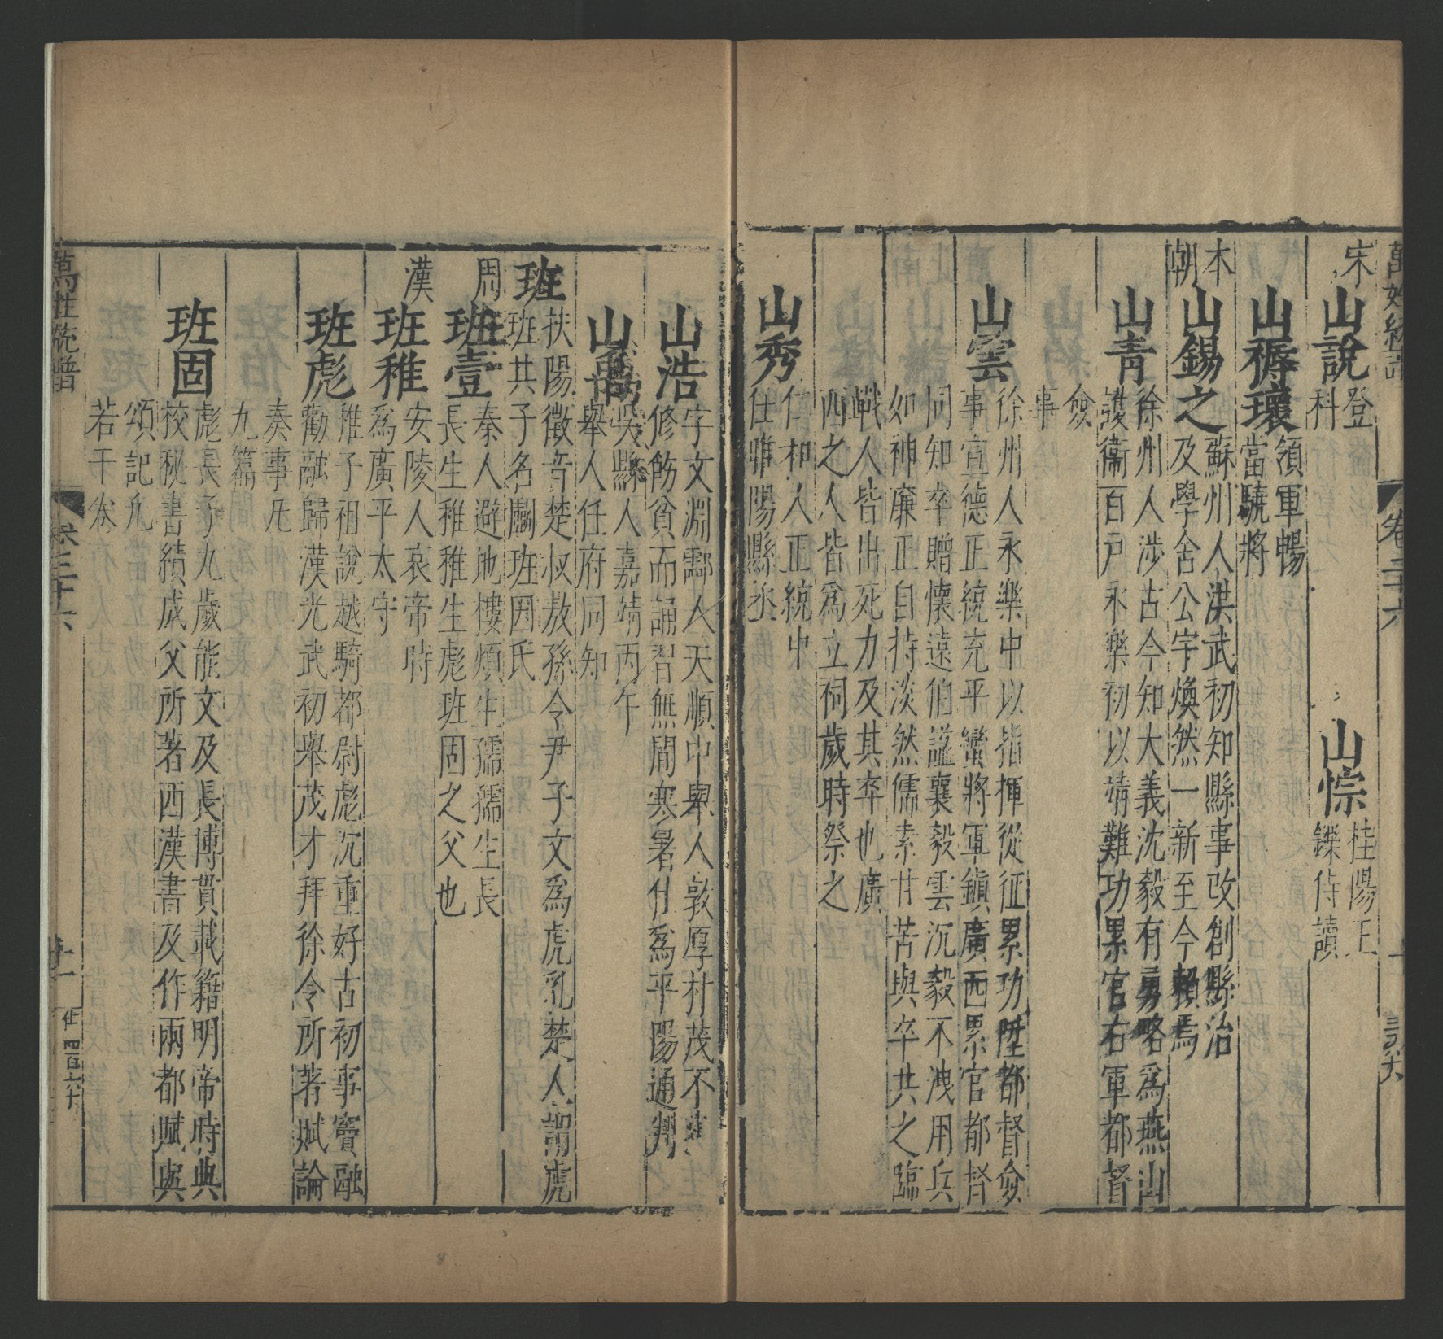 萬姓統譜
卷二十六
宋
山說
登
科
山悰
桂陽王
鑠侍讀
山㮤瓌
領軍暢
當驍將
本
朝
山錫之
蘇州人洪武初知縣事改創縣治
及學舍公宇煥然一新至今賴焉
山青
徐州人涉古今知大義沈毅有勇略爲燕山
護衞百戶永樂初以靖難功累官右軍都督
僉
事
山雲
徐州人永樂中以指揮從征累功陞都督僉
事宣德正統充平蠻將軍鎮廣西累官都督
同知卒贈懷遠伯謚襄毅雲沉毅不洩用兵
如神廉正自持淡然儒素甘苦與卒共之臨
戰人皆出死力及其卒也廣
西之人皆爲立祠歲時祭之
山秀
仁和人正統中
任睢陽縣丞
山浩
字文淵鄠人天順中舉人敦厚朴茂不
修飭貧而誦習無間寒暑仕爲平陽通判
山萬
吳縣人嘉靖丙午
舉人任府同知
班
扶陽徵音楚叔敖孫令尹子文爲虎乳楚人謂虎
班其子名鬭班因氏
周
班壹
秦人避地樓煩生孺孺生長
長生稚稚生彪班固之父也
漢
班稚
安陵人哀帝時
爲廣平太守
班彪
雉子祖說越騎都尉彪沉重好古初事竇融
勸融歸漢光武初舉茂才拜徐令所著賦論
奏事凡
九篇
班固
彪長子九歲能文及長博貫載籍明帝時典
校秘書績成父所著西漢書及作兩都賦與
頌記凡
若干卷
萬姓統譜
卷二十六
十一